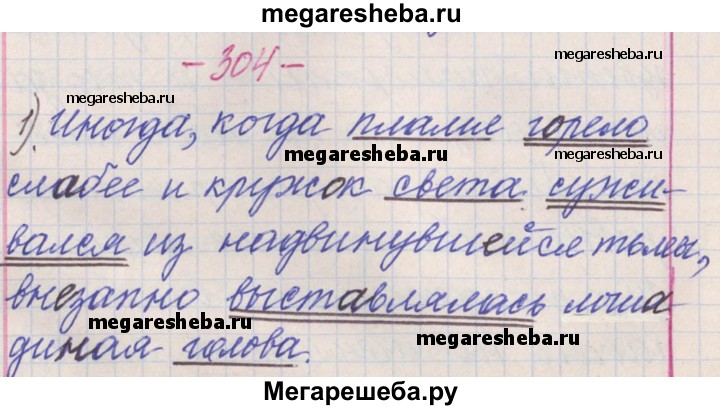 megaresheba.ru
megaresheba.ru
- 304 -
megaresheba.ru
1). Иногда, когда пламие горело
megaresheba.ru megaresheba.ru
слабее и кружок света сужи-
вался из надвинувшейся тьмы,
внезапно выставлялась лоша-
megaresheba.ru megaresheba.ru
диная голова.
Мегарешеба.ру